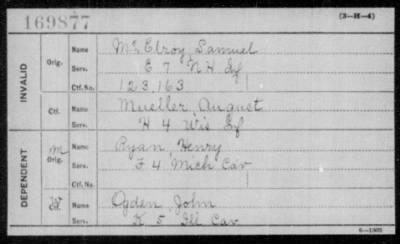 169877
(3-H-4)
INVALID
Orig.
Name McElroy Samuel
Serv. E 7 N H Inf
Ctf. No. 123,163
Ctf.
Name Mueller, August
Serv. H 4 Wis Inf
DEPENDENT
M
Orig.
Name Ryan Henry
Serv. F 4 Mich Cav
Ctf. No.
Name Ogden John
Serv. K 5 Ill Cav